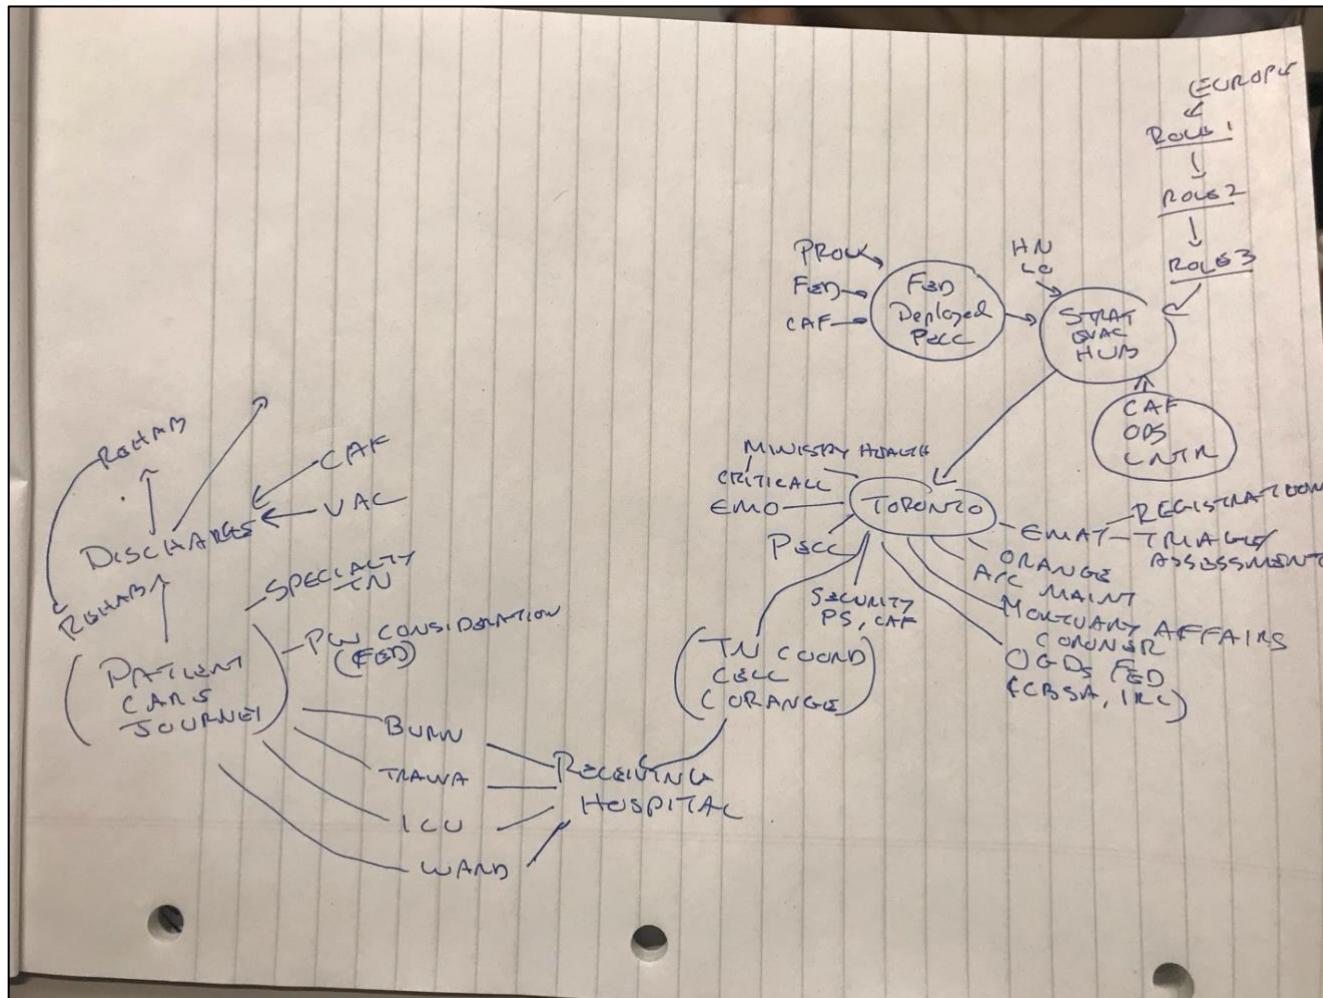 EUROPE
ROLE 1
ROLE 2
ROLE 3
HN
LO
PROV
FED
CAF
FED
Deployed
PECC
STRAT
EVAC
HUB
CAF
OPS
CNTR
MINISTRY HEALTH
CRITICALL
EMO
PECC
TORONTO
EMAT
REGISTRATION
TRIAGE/
ASSESSMENT
ORANGE
A/C MAINT
MORTUARY AFFAIRS
CORONER
OGDs FED
(CBSA, IRC)
SECURITY
PS, CAF
TN COORD
CELL
(ORANGE)
RECEIVING
HOSPITAL
BURN
TRAUMA
ICU
WARD
PATIENT
CARE
JOURNEY
SPECIALTY
TN
PW CONSIDERATION
(FED)
REHAB
DISCHARGES
CAF
VAC
REHAB